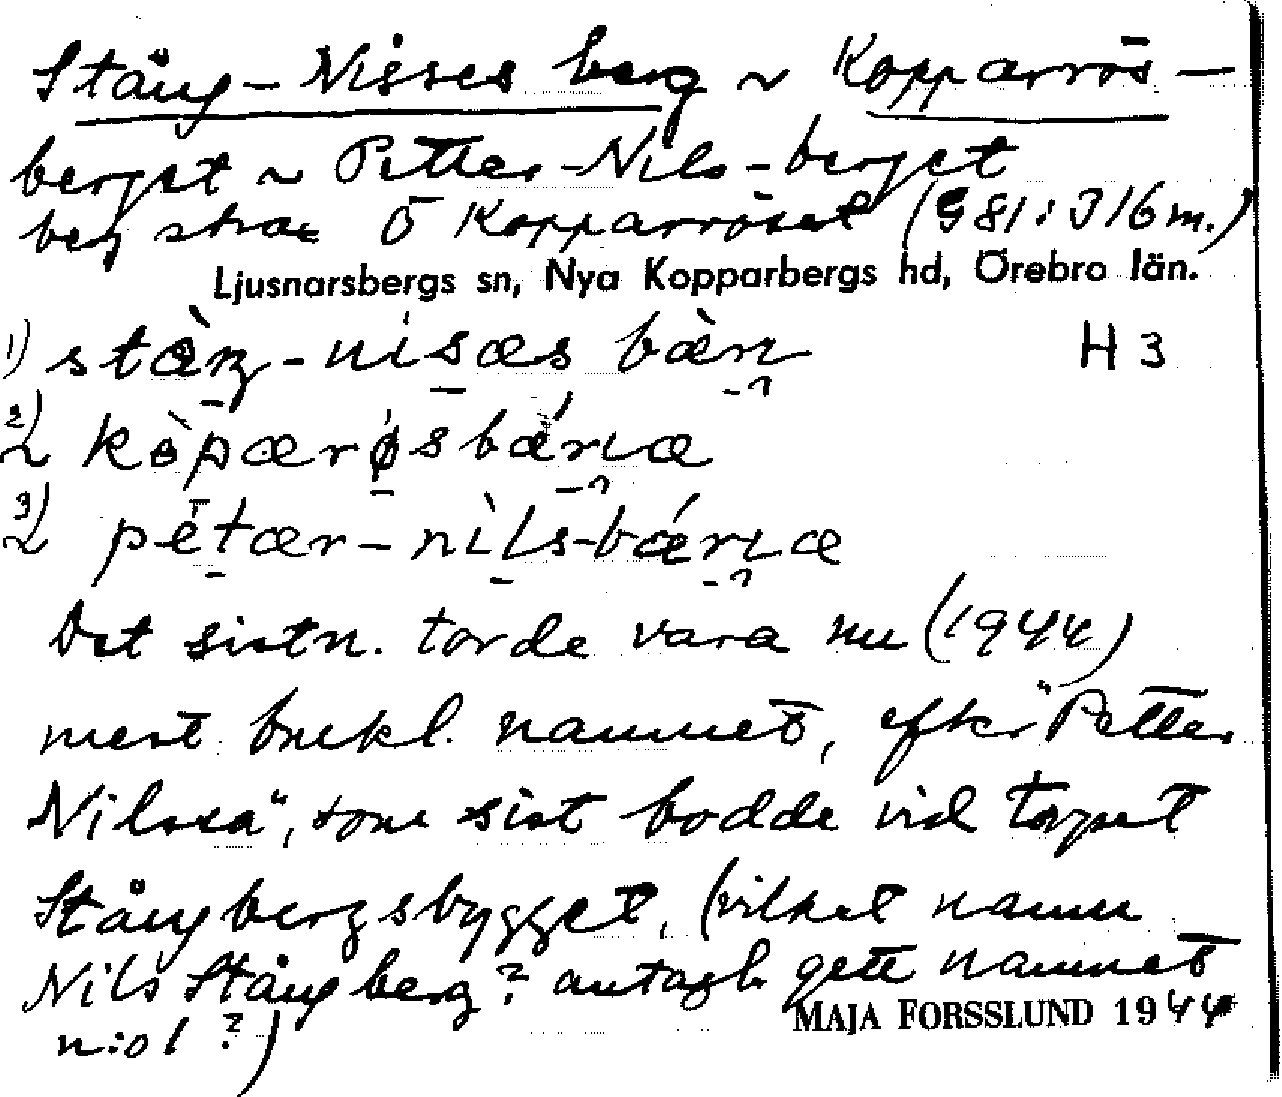 Stång-Nisses berg ~ Kopparrös-
berget ~ Petter-Nils-berget
berg strax Ö Kopparröset (G 81: 316 m.)
Ljusnarsbergs sn, Nya Kopparbergs hd, Örebro län.
1) H 3
2)
3)
Det sistn. torde vara nu (1944)
mest brukl. namnet, efter "Petter
Nilssa", som sist bodde vid torpet
Stångbergsbygget, (vilket namn
Nils Stångberg? antagl. gett namnet
n:o 1 ?)
MAJA FORSSLUND 1944